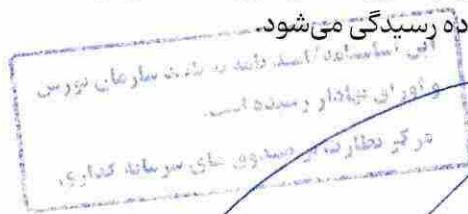 ده رسیدگی می‌شود.
این اساسنامه/امیدنامه به تأیید سازمان بورس
و اوراق بهادار رسیده است.
مرکز نظارت بر صندوق های سرمایه گذاری